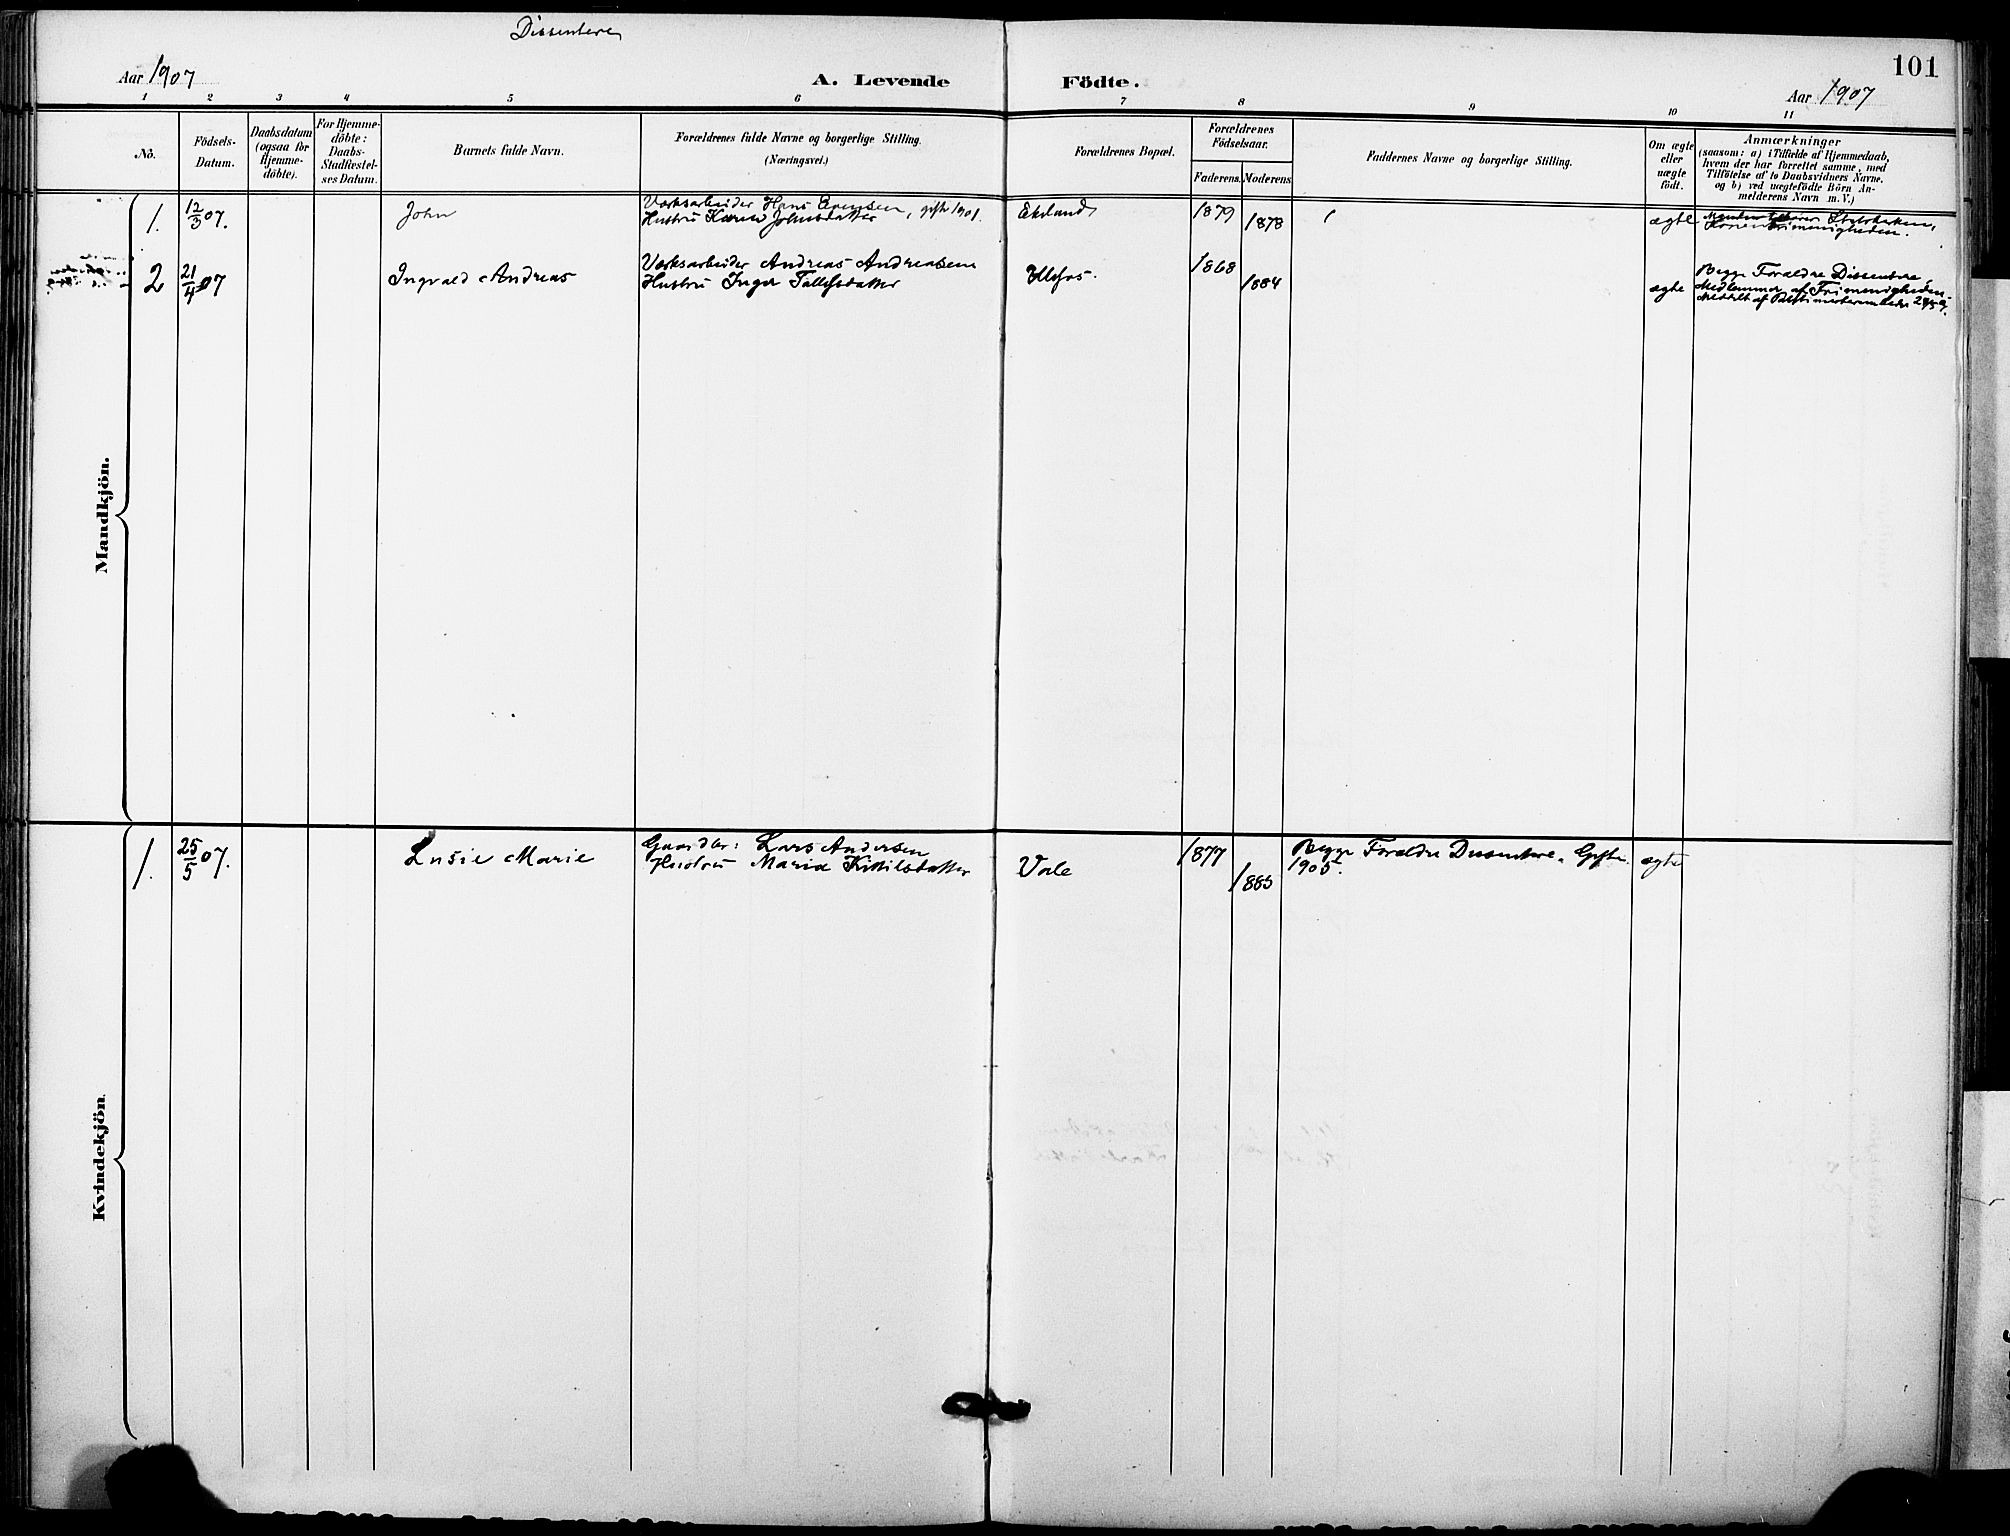 Dissentere
101
Aar 1907
A. Levende Födte.
Aar 1907
1 2 3 4 5 6 7 8 9 10 11
No.
Födsels-
Datum.
Daabsdatum
(ogsaa for
Hjemme-
döbte).
For Hjemme-
döbte:
Daabs-
Stadfæstel-
ses Datum.
Barnets fulde Navn.
Forældrenes fulde Navne og borgerlige Stilling.
(Næringsvei.)
Forældrenes Bopæl.
Forældrenes
Födselsaar.
Faderens. Moderens.
Faddernes Navne og borgerlige Stilling.
Om ægte
eller
uægte
födt.
Anmærkninger
(saasom: a) i Tilfælde af Hjemmedaab,
hvem der har forrettet samme, med
Tilföielse af to Daabsvidners Navne.
og b) ved uægtefödte Börn An-
melderens Navn m. V.)
Mandkjön.
1. 12/3 07. John
Værksarbeider Hans Evensen, gift 1901.
Hustru Karen Johnsdatter
Ekelund 1879 1878 ægte
Manden tilhører Statskirken,
Konen Frimenigheden.
2 21/4 07 Ingvald Andreas
Værksarbeider Andreas Andreasen
Hustru Inger Tallefsdatter
Ulefos. 1868 1884 ægte
Begge Forældre Dissentere
Medlemmer af Frimenigheden
Kvindekjön.
1. 25/5 07. Lusie Marie
Gaardbr: Lars Andersen
Hustru Maria Kittilsdatter
Vale 1877 1885
Begge Forældre Dissentere. Gifte
1905.
ægte